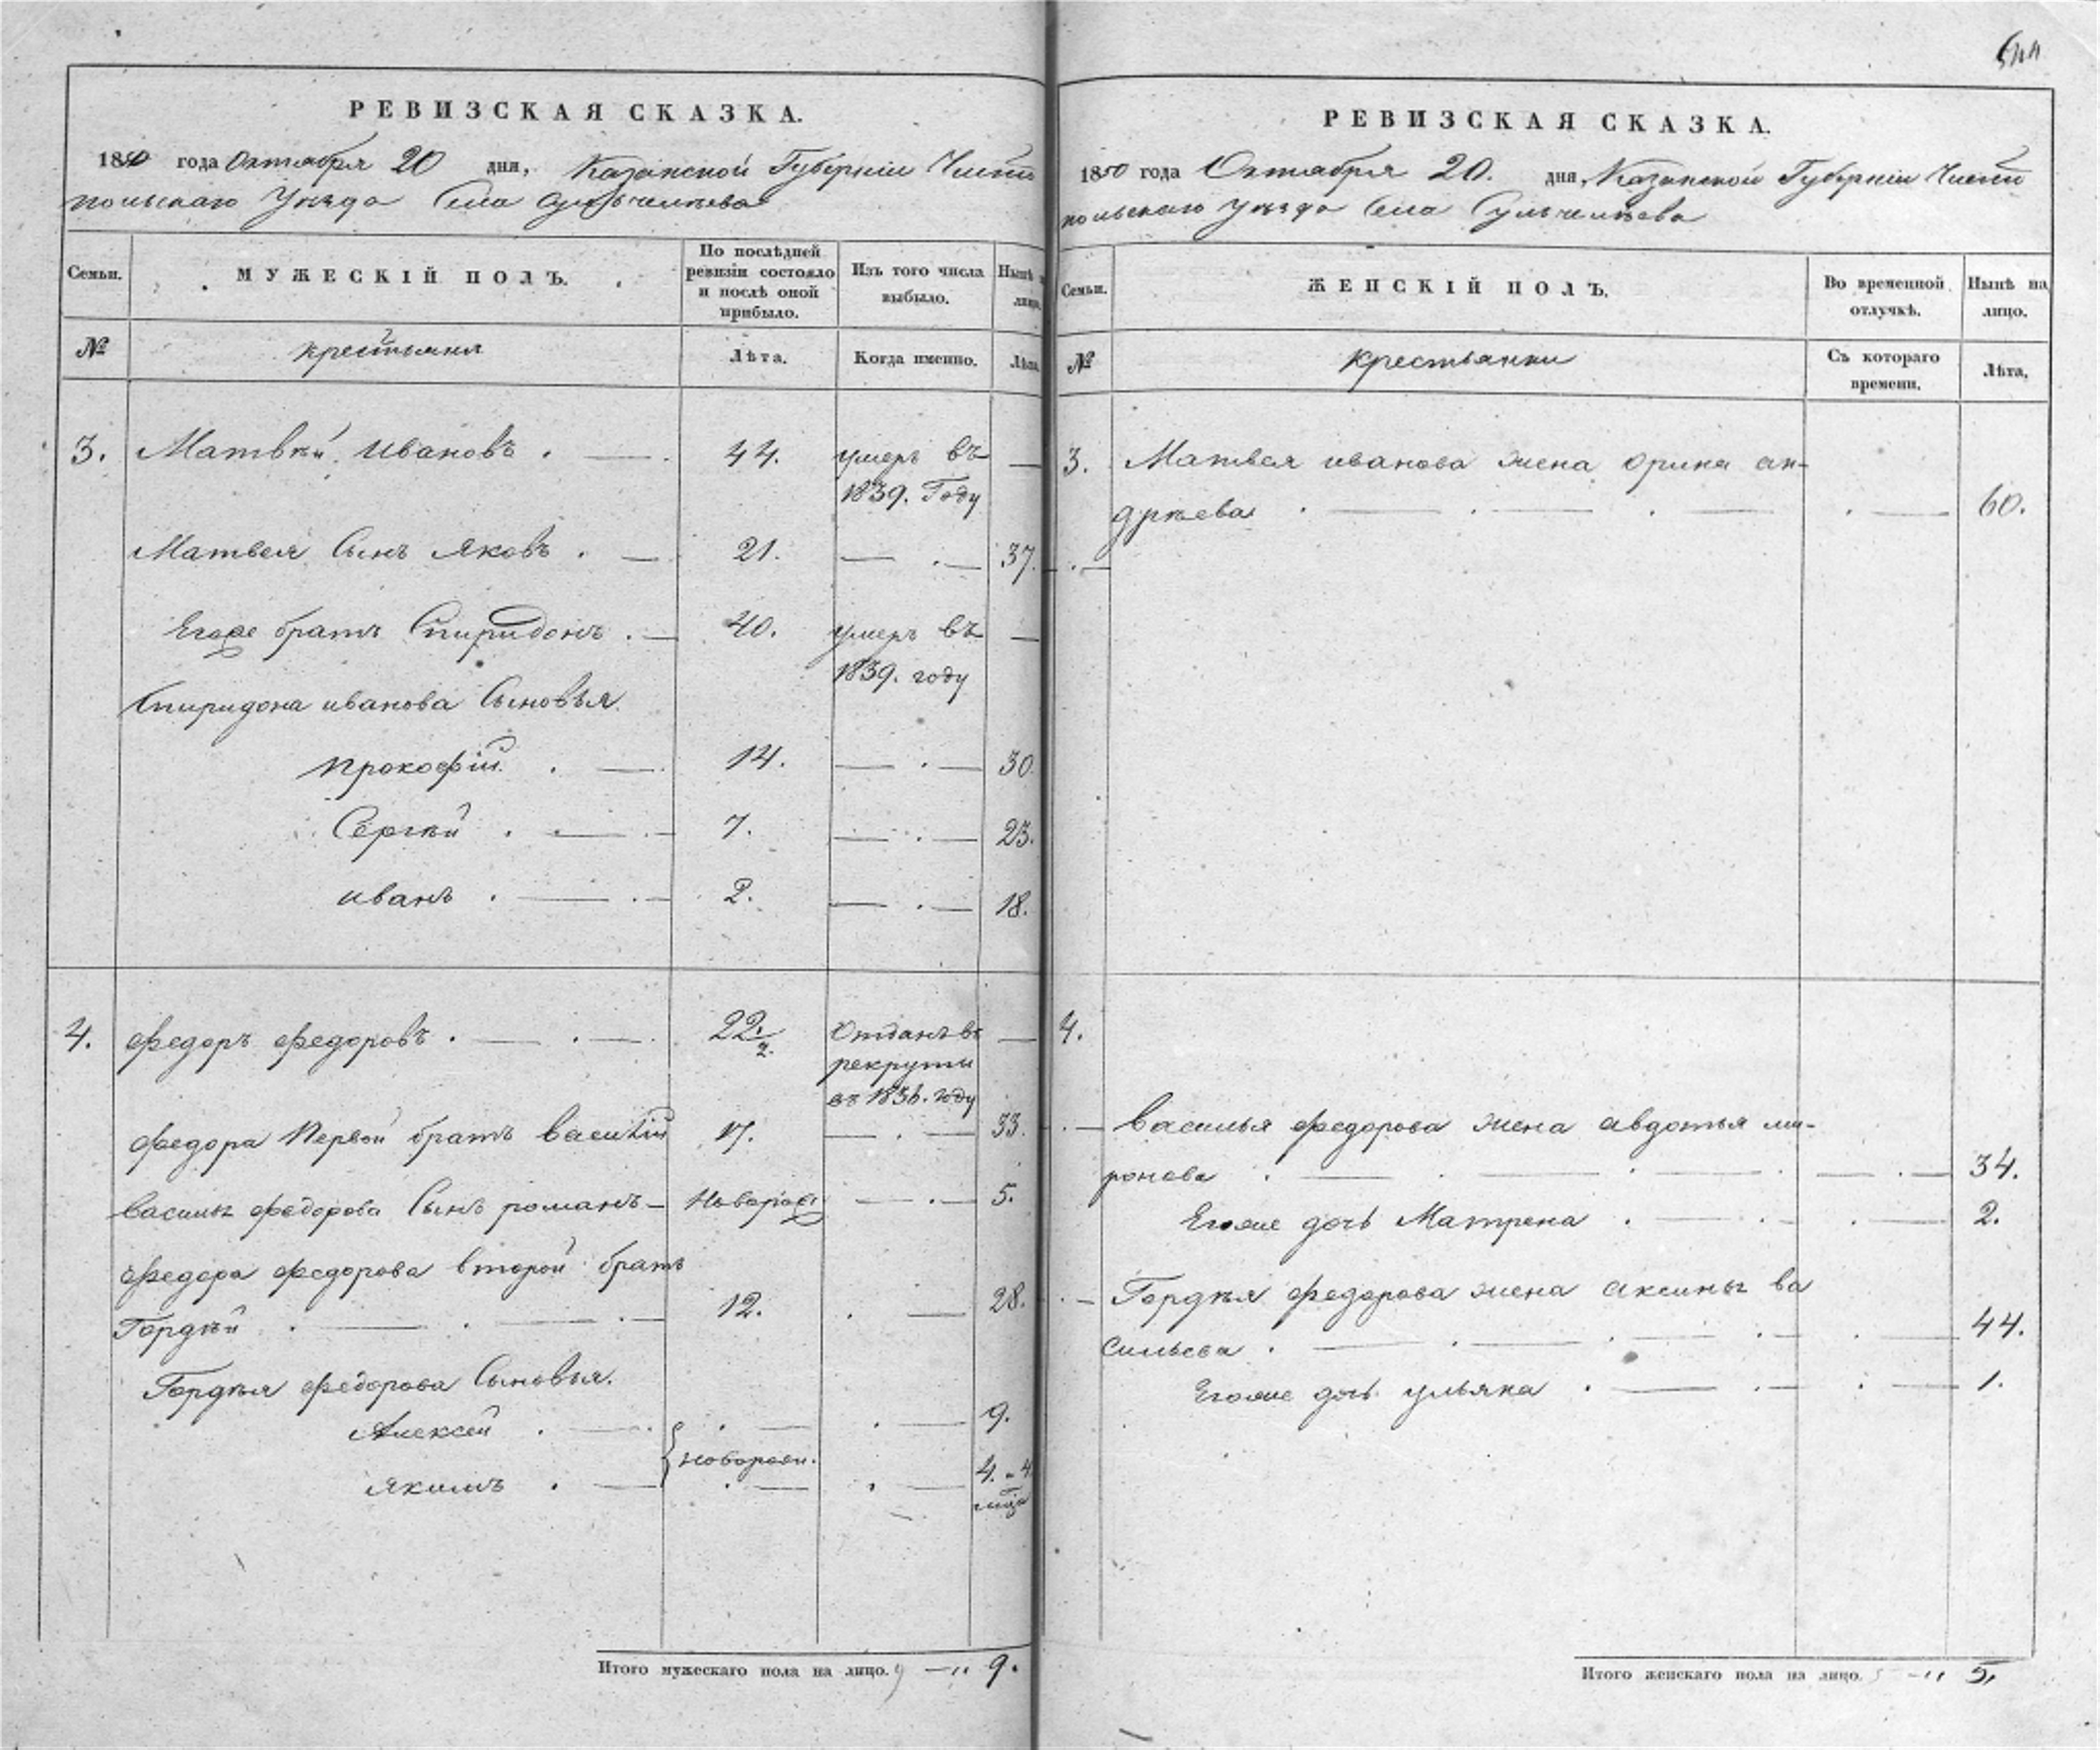 544
РЕВИЗСКАЯ СКАЗКА.
1850 года Октября 20 дня, Казанской Губерніи Чисто
польскаго Уезда Села Сульчелеева
Семьи.
МУЖЕСКІЙ ПОЛЪ.
По послѣдней ревизіи состояло и послѣ оной прибыло.
Изъ того числа выбыло.
Нынѣ на лицо.
№
крестьяня
Лѣта.
Когда именно.
Лѣта
3. Матвѣй Ивановъ . — 44. умеръ въ —
1839. Году
Матвея Сынъ Яковъ . — 21. — . — 37.
Егоже братъ Спиридонъ . — 40. умеръ въ —
1839. году
Спиридона иванова Сыновья.
прокофій . — 14. — . — 30.
Сергѣй . — . — 7. — . — 23.
иванъ . — . — 2. — . — 18.
4. Федоръ федоровъ . — . — 22.½. Отданъ въ —
рекруты
въ 1836. году
Федора Первой братъ василій 17. — . — 33.
васильѣ федорова Сынъ романъ — Новорож — . — 5.
Федора федорова второй братъ
Гордѣй . — . — . — 12. . — 28.
Гордѣя федорова Сыновья.
Алексей . — . — . — 9.
новорожн.
якимъ . — . — . — 4. - 4
мѣца
Итого мужескаго пола на лицо. 9 — „ 9.
РЕВИЗСКАЯ СКАЗКА.
1850 года Октября 20. дня, Казанской Губерніи Чисто
польскаго Уезда Села Сульчелеева
Семьи.
ЖЕНСКІЙ ПОЛЪ.
Во временной отлучкѣ.
Нынѣ на лицо.
№
крестьянки
Съ котораго времени.
Лѣта,
3. Матвея иванова жена орина ан-
дрѣева . — . — . — . — 60.
. —
4.
. — Василья федорова жена авдотья ми-
ронова . — . — . — . — . — 34.
Егоже дочь Матрена . — . — . — 2.
. — Гордѣя федорова жена аксинья ва
сильева . — . — . — . — . — 44.
Егоже дочь ульяна . — . — . — 1.
Итого женскаго пола на лицо. 5 — „ 5,